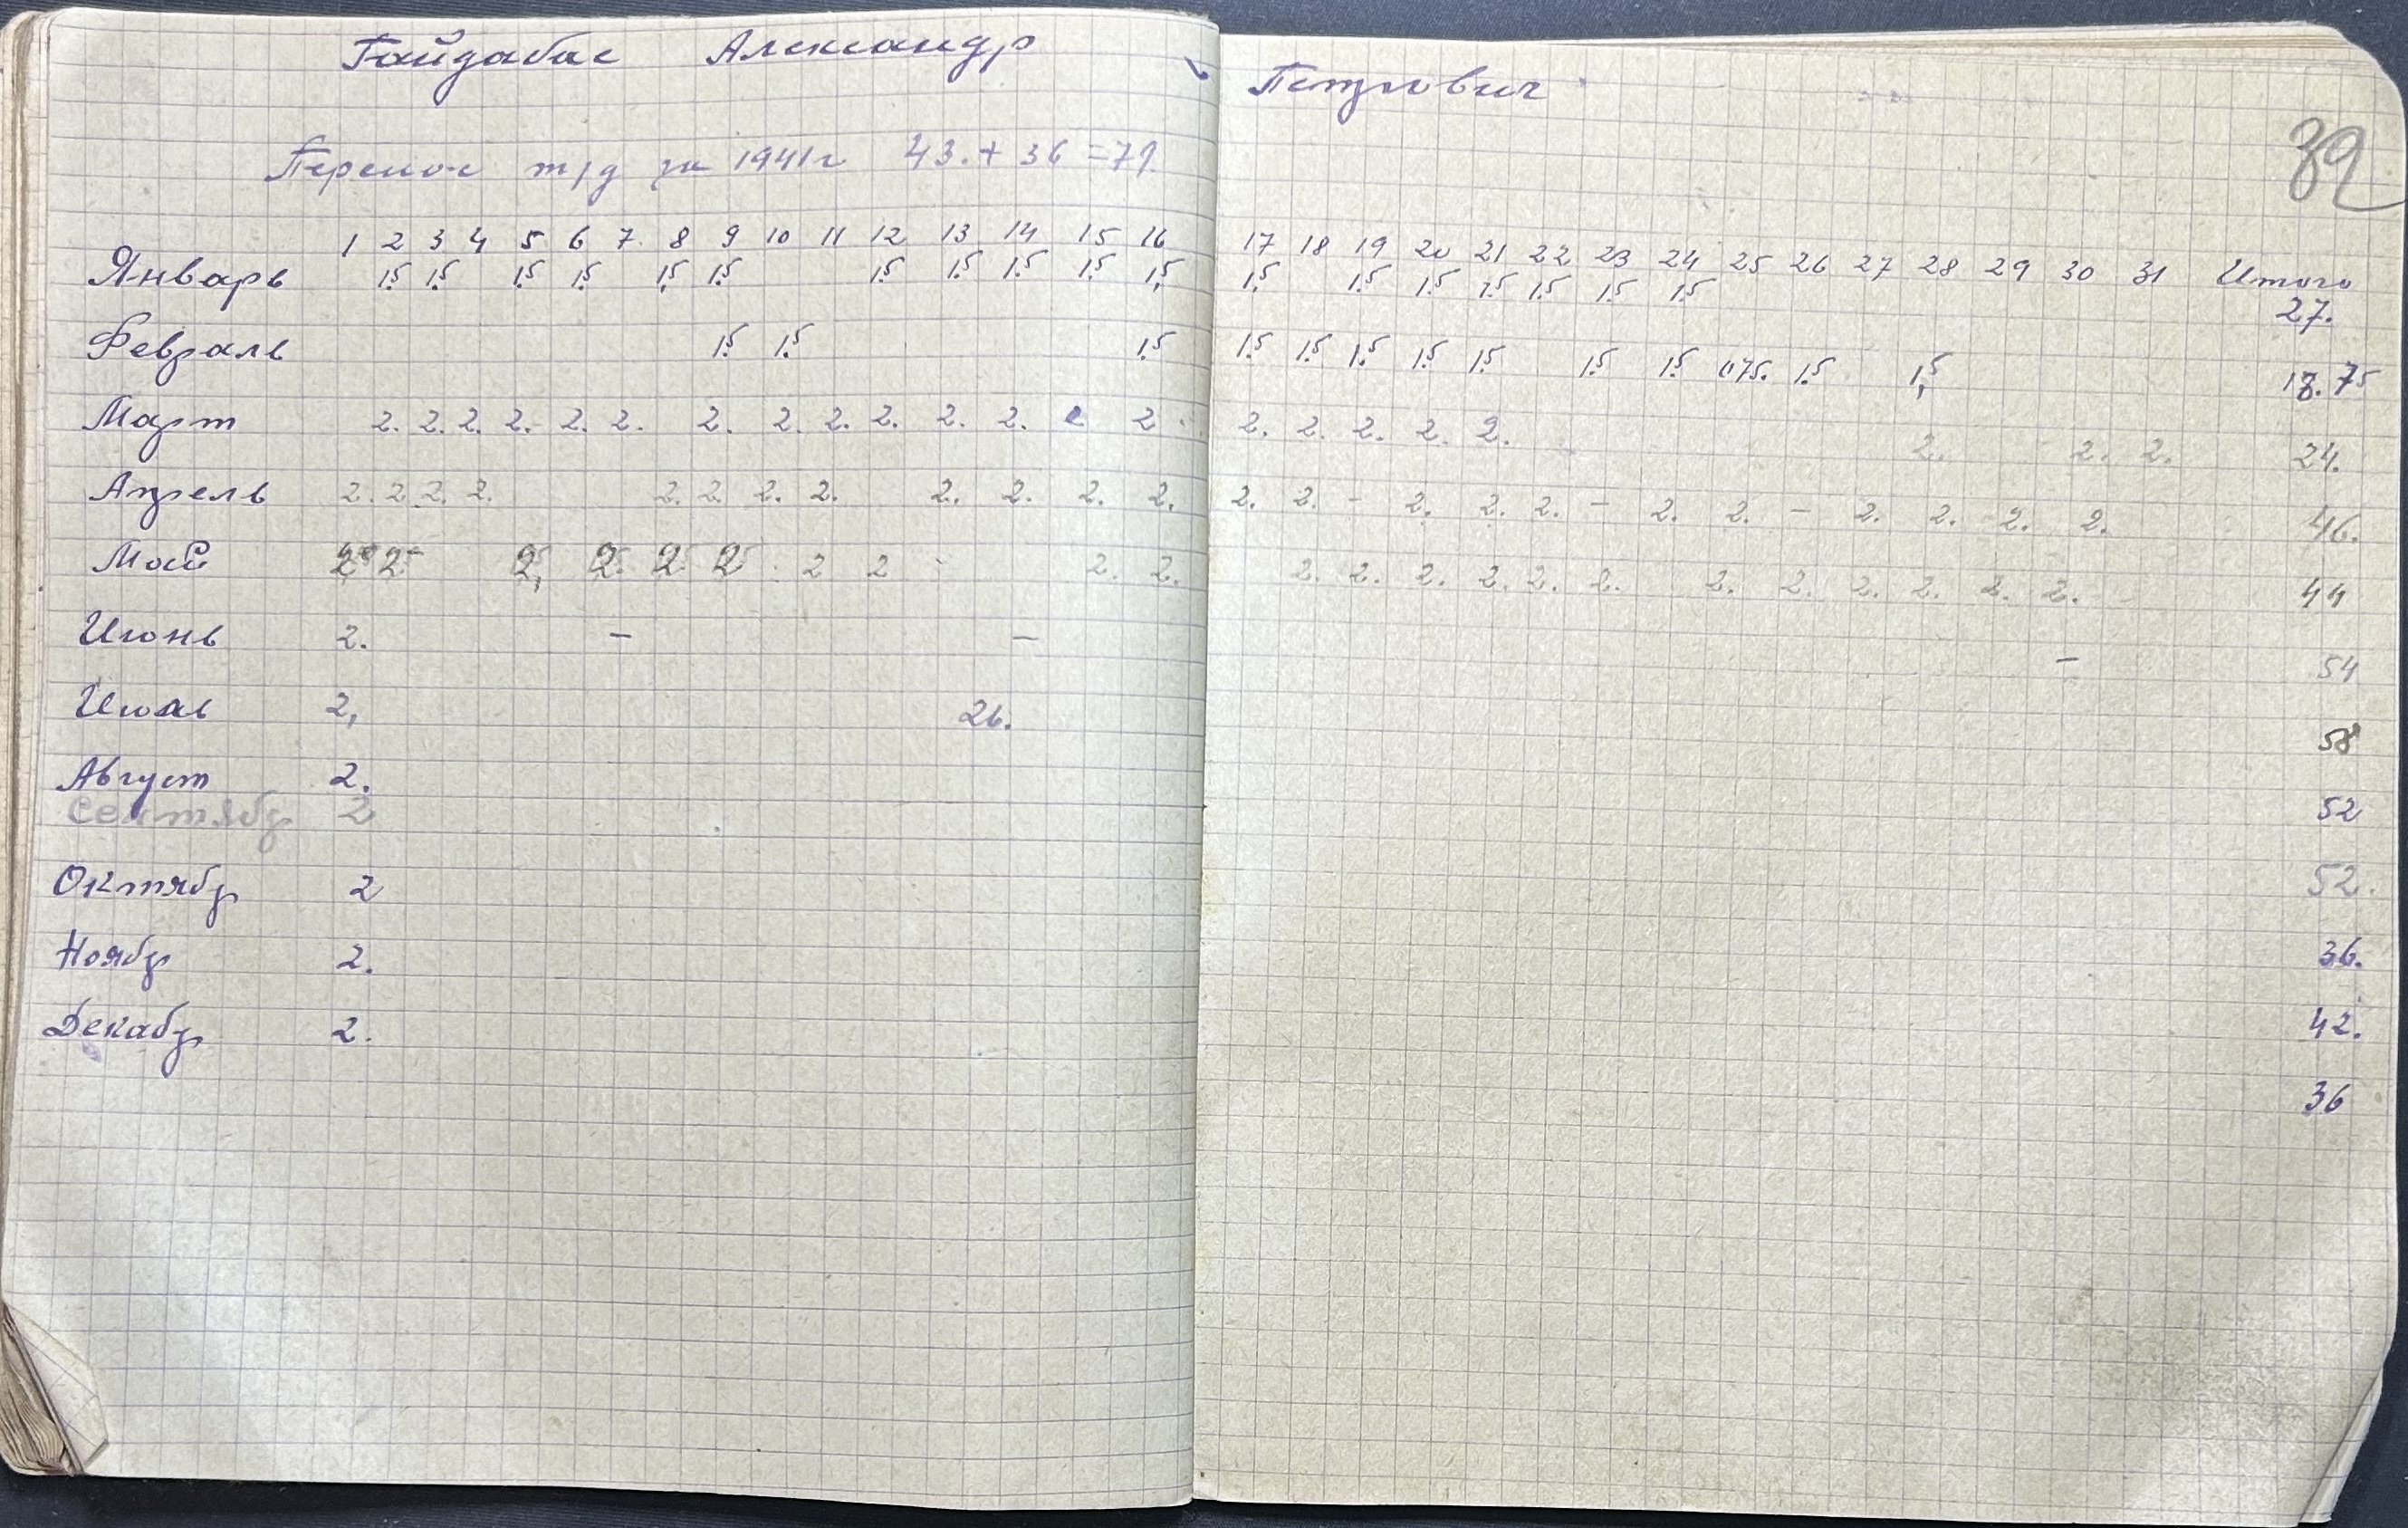 Гайдабас Александр Петрович
39
Перенос т/д за 1941г 43.+36=79.
1 2 3 4 5 6 7. 8 9 10 11 12 13 14 15 16 17 18 19 20 21 22 23 24 25 26 27 28 29 30 31 Итого
Январь 1.5 1.5 1.5 1.5 1.5 1.5 1.5 1.5 1.5 1.5 1.5 1.5 1.5 1.5 1.5 1.5 1.5 1.5 27.
Февраль 1.5 1.5 1.5 1.5 1.5 1.5 1.5 1.5 1.5 1.5 0.75. 1.5 1.5 18.75
Март 2. 2. 2. 2. 2. 2. 2. 2. 2. 2. 2. 2. 2. 2. 2. 2. 2. 2. 2. 2. 2. 24.
Апрель 2. 2. 2. 2. 2. 2. 2. 2. 2. 2. 2. 2. 2. 2. – 2. 2. 2. – 2. 2. – 2. 2. 2. 2. 46.
Май 2 2 2 2 2 2 2 2 2. 2. 2. 2. 2. 2. 2. 2. 2. 2. 2. 2. 2. 2. 44
Июнь 2. – – – 54
Июль 2, 26. 58
Август 2. 52
Сентябр 2 52.
Октябр 2 36.
Ноябр 2. 42.
Декабр 2. 36